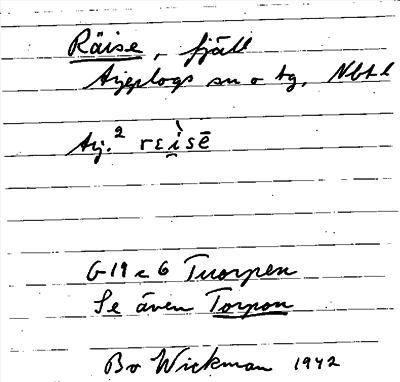 Räise, fjäll
Arjeplogs sn o tg, Nbtl
Arj.² rɛì̯sē
G 19 c 6 Tuorpen
Se även Torpon
Bo Wickman 1942